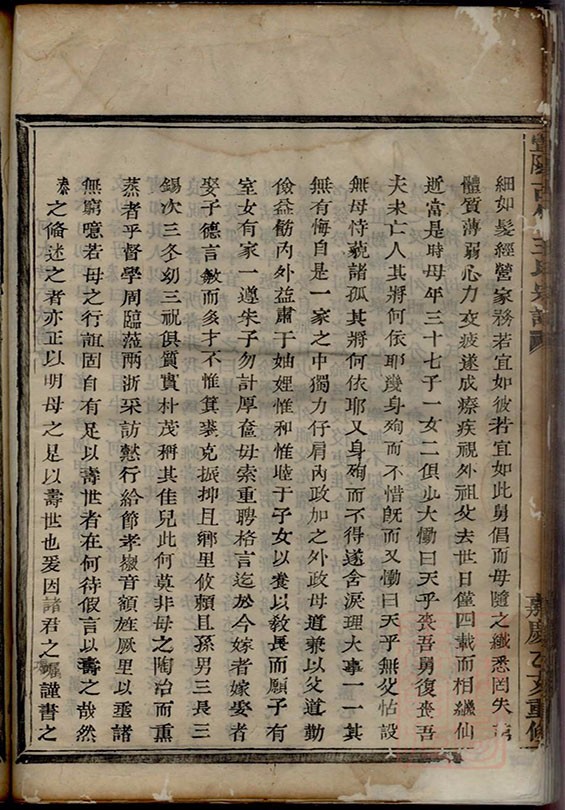 細如髮經營家務若宜如彼若宜如此舅倡而母隨之纖悉罔失
體質薄弱心力交疲遂成療疾視外祖父去世日僅四載而相繼仙
逝當是時母年三十七子一女二俱少大慟曰天乎喪吾舅復喪吾
夫未亡人其將何依耶幾身殉而不惜旣而又慟曰天乎無父怙設
無母恃藐諸孤其將何依耶又身殉而不得遂含淚理大事一一其
無有悔自是一家之中獨力仔肩內政加之外政母道兼以父道勤
儉益篤內外益肅于妯娌惟和惟睦于子女以養以敎長而願子有
室女有家一遵朱子勿計厚奩毋索重聘格言迄於今嫁者嫁娶者
娶子德言敏而多才不惟箕裘克振抑且鄉里攸賴且孫男三長三
錫次三多幼三祝俱質實朴茂稱其佳兒此何莫非母之陶冶而薰
蒸者乎督學周臨蒞兩浙采訪懿行給節孝徽音額旌厥里以垂諸
無窮噫若母之行誼固自有足以壽世者在何待假言以壽之哉然
泰之脩述之者亦正以明母之足以壽世也爰因諸君之囑謹書之
嘉慶乙亥重修